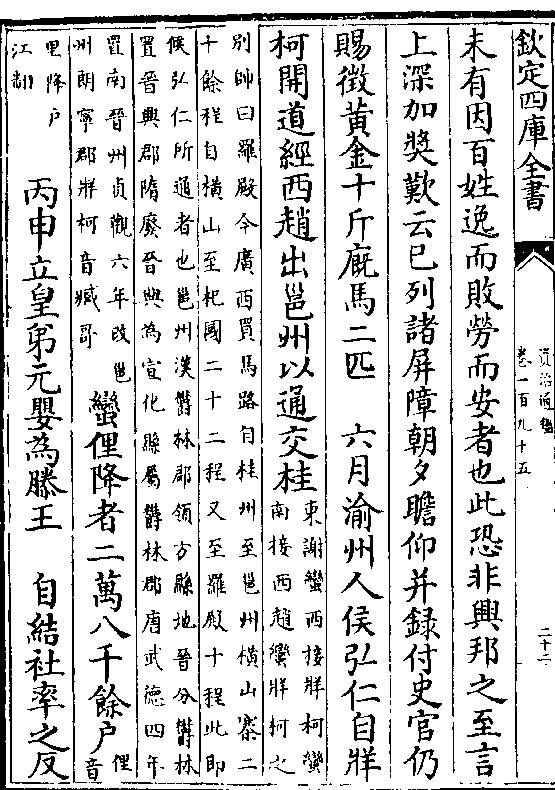 欽定四庫全書
資治通鑑
卷一百九十五
二十二
未有因百姓逸而敗勞而安者也此恐非興邦之至言
上深加獎歎云已列諸屏障朝夕瞻仰并録付史官仍
賜徵黄金十斤廐馬二匹　六月渝州人侯弘仁自牂
柯開道經西趙出邕州以通交桂
東謝蠻西接牂柯蠻
南接西趙蠻牂柯之
别帥曰羅殿今廣西買馬路自桂州至邕州横山寨二
十餘程自横山至杞國二十二程又至羅殿十程此即
侯弘仁所通者也邕州漢欝林郡領方縣地晉分欝林
置晉興郡隋廢晉興為宣化縣屬欝林郡唐武德四年
置南晉州貞觀六年改邕
州朗寧郡牂柯音臧哥
蠻俚降者二萬八千餘户
俚
音
里降户
江翻
丙申立皇弟元嬰為滕王　自結社率之反